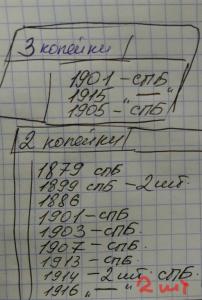 3 копейки
1901 - СПБ
1915 — "
1905 - " СПБ
2 копейки
1879 СПБ
1899 СПБ - 2 шт.
1886
1901 - СПБ
1903 - СПБ.
1907 - СПБ.
1913 - СПБ.
1914 - 2 шт. СПБ.
1916 " — " 2 шт